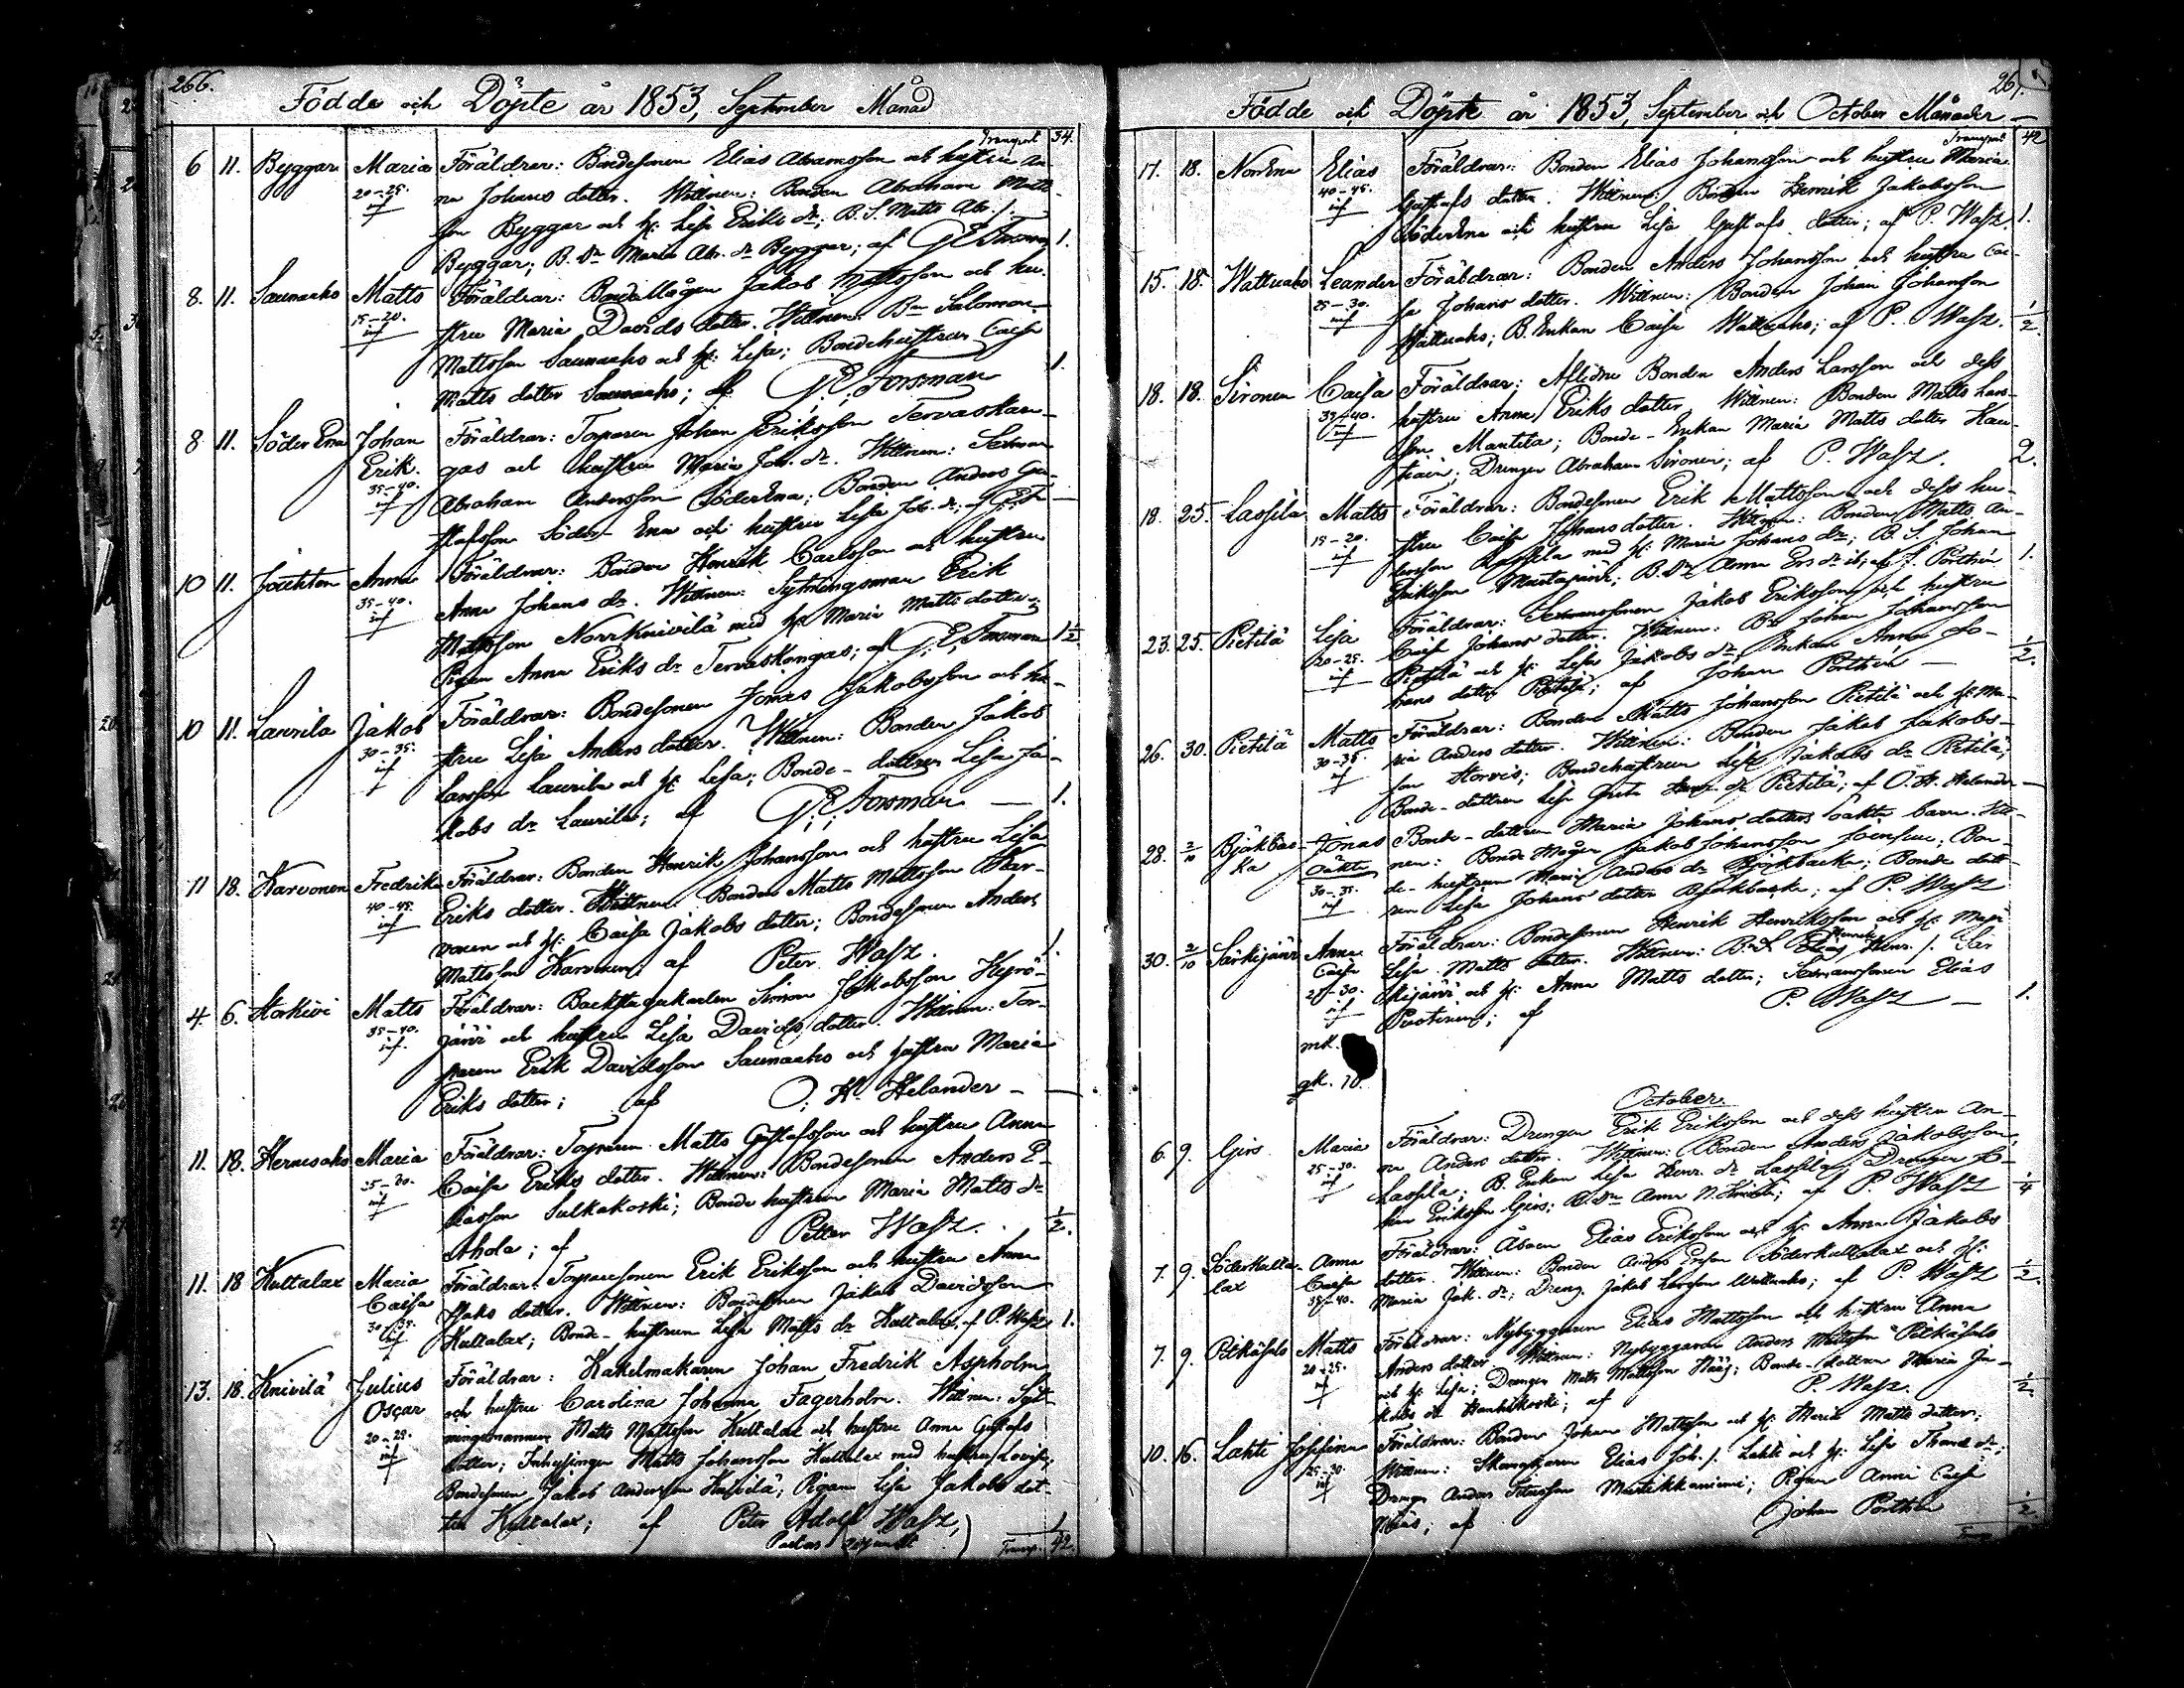 266.
Födde och Döpte år 1853, September Månad
Transport 34.
6 11. Byggar Maria Föräldrar: Bondesonen Elias Abramsson och hustru An-
20-25. na Johans dotter. Wittnen: Bonden Abraham Matts-
inf son Byggar och h: Lisa Eriks dr; B. S. Matts Abr. s.
Byggar; B. Dr Maria Abr. dr Byggar; af G. E. Forsman 1.
8. 11. Saunaaho Matts Föräldrar: Bondemågen Jakob Mattsson och hu-
15-20. stru Maria Davids dotter. Wittnen: Bn Salomon
inf Mattsson Saunaaho och h: Lisa; Bondehustrun Caisa
Matts dotter Saunaaho; af G. E. Forsman 1.
8 11. Söder Ena Johan Föräldrar: Torparen Johan Eriksson Tervaskan-
Erik. gas och hustru Maria Joh. dr. Wittnen: Sexman
35-40. Abraham Andersson Söder Ena; Bonden Anders Gu-
inf stafsson Söder-Ena och hustru Lisa Joh. dr; af G. E. F. —
10 11. Jouhten Anna Föräldrar: Bonden Henrik Carlsson och hustru
35-40. Anna Johans dr. Wittnen: Sytningsman Erik
inf Mattsson Norrknivilä med h: Maria Matts dotter;
Pigan Anna Eriks dr Tervaskangas; af G. E. Forsman 1 1/2
10 11. Laurila Jakob Föräldrar: Bondesonen Jonas Jakobsson och hu-
30-35. stru Lisa Anders dotter. Wittnen: Bonden Jakob
inf Larsson Laurila och h: Lisa; Bonde-dottren Lisa Ja-
kobs dr Laurila; af G. E. Forsman — 1.
11 18. Karvonen Fredrika Föräldrar: Bonden Henrik Johansson och hustru Lisa
40-45. Eriks dotter. Wittnen: Bonden Matts Mattsson Kar-
inf vonen och h: Caisa Jakobs dotter; Bondesonen Anders
Mattsson Karvonen; af Peter Wasz. 1.
4. 6. Storkivi Matts Föräldrar: Backstugukarlen Simon Jakobsson Kyrö-
35-40. järvi och hustru Lisa Davids dotter. Wittnen: Tor-
inf. paren Erik Davidsson Saunaaho och hustru Maria
Eriks dotter; af O. H. Helander —
11. 18. Hernesaho Maria Föräldrar: Torparen Matts Gustafsson och hustru Anna
25-30. Caisa Eriks dotter. Wittnen: Bondesonen Anders E-
inf liasson Sulkakoski; Bonde hustrun Maria Matts dr
Ahola; af Petter Wasz. 1/2.
11. 18 Kultalax Maria Föräldrar: Torparesonen Erik Eriksson och hustru Anna
Caisa Isaks dotter. Wittnen: Bondesonen Jakob Davidsson
30-35. inf Kultalax; Bonde-hustrun Lisa Matts dr Kultalax, af P. Wasz 1.
13. 18. Knivilä Julius Föräldrar: Kakelmakaren Johan Fredrik Aspholm
Oscar och hustru Carolina Johanna Fagerholm. Wittnen: Syt-
20-25. ningsmannen Matts Mattsson Kultalax och hustru Anna Gustafs
inf dotter; Inhysingen Matts Johansson Kultalax med hustru Lovisa;
Bondesonen Jakob Andersson Knivilä; Pigan Lisa Jakobs dot-
ter Kultalax; af Peter Adolf Wasz, 1
Transp. 42.
267.
Födde och Döpte år 1853, September och October Månader —
Transport 42
17. 18. NorrEna Elias Föräldrar: Bonden Elias Johansson och hustru Maria
40-45. Gustafs dotter. Wittnen: Bonden Henrik Jakobsson
inf SöderEna och hustru Lisa Gustafs dotter; af P. Wasz. 1.
15. 18. Wattuaho Leander Föräldrar: Bonden Anders Johansson och hustru Cai-
25-30. sa Johans dotter. Wittnen: Bonden Johan Johansson
inf Wattuaho; B. Enkan Caisa Wattuaho; af P. Wasz. 1/2.
18. 18. Sironen Caisa Föräldrar: Aflidne Bonden Anders Larsson och dess
35-40. hustru Anna Eriks dotter Wittnen: Bonden Matts Lars-
inf son Mantila; Bonde-Enkan Maria Matts dotter
Drengen Abraham Sironen; af P. Wasz. 2.
18. 25. Lassila Matts Föräldrar: Bondesonen Erik Mattsson och dess hu-
15-20. stru Caisa Johans dotter. Wittnen: Bonden Matts An-
inf dersson Lassila med h: Maria Johans dr; B. S. Johan
Eriksson Mustajärvi; B. Dr Anna Ers dr ib; af J. Porthén 1.
23. 25. Pietilä Lisa Föräldrar: Sexmanssonen Jakob Eriksson och hustru
20-25. Caisa Johans dotter. Wittnen: Bn Johan Johansson
inf Pietilä och h: Lisa Jakobs dr; Enkan Anna Jo-
hans dotter Pietilä; af Johan Porthén — 1/2.
26. 30. Pietilä Matts Föräldrar: Bonden Matts Johansson Pietilä och h: Ma-
30-35. ria Anders dotter. Wittnen: Bonden Jakob Jakobs-
inf son Storvis; Bondehustrun Lisa Jakobs dr Pietilä;
Bonde-dottren Lisa Greta Henr. dr Pietilä; af O. H. Helander —
28. 2/10 Björkbac- Jonas Bonde-dottren Maria Johans dotters oäkta barn. Witt-
ka Oäkta nen: Bonde Mågen Jakob Johansson Bon-
30-35. de-hustrun Maria Anders dr Björkbacka; Bonde dott-
inf ren Lisa Johans dotter Björkbacka; af P. Wasz
30. 2/10 Särkijärvi Anna Föräldrar: Bondesonen Henrik Henriksson och h: Maja
Caisa Lisa Matts dotter. Wittnen: B. S. Elias Henrik Henr. s. Sär
25-30. kijärvi och h: Anna Matts dotter; Sexmanssonen Elias
inf Puotinen; af P. Wasz — 1.
mk.
qk. 10.
October.
6. 9. Girs Maria Föräldrar: Drengen Erik Eriksson och dess hustru An-
25-30. na Anders dotter. Wittnen: Bonden Anders Jakobsson
inf Lassila; B. Enkan Lisa Henr. dr Lassila; Drengen Jo-
han Eriksson Girs; B. Dr Anna N. Knivilä; af P. Wasz 1/4
7. 9. Söderkulta- Anna Föräldrar: Åboen Elias Eriksson och h: Anna Jakobs
lax Caisa dotter. Wittnen: Bonden Anders Ersson Söderkultalax och h:
35-40. Maria Jak. dr; Dreng. Jakob Larsson Wattuaho; af P. Wasz 1/2.
7. 9. Pitkäsalo Matts Föräldrar: Nybyggaren Elias Mattsson och hustru Anna
20-25. Anders dotter. Wittnen: Nybyggaren Anders Mattsson Pitkäsalo
inf och h: Lisa; Drengen Matts Mattsson Bonde-dottren Maria Ja-
kobs dr Hanhikoski; af P. Wasz. 1/2.
10. 16. Lahti Josefina Föräldrar: Bonden Johan Mattsson och h: Maria Matts dotter;
25-30. Wittnen: Skomakaren Elias Joh. s. Lahti och h: Lisa Thomæ dr;
inf Dreng Anders Mustikkaniemi; Pigan Anna Caisa
af Johan Porthén 1/2